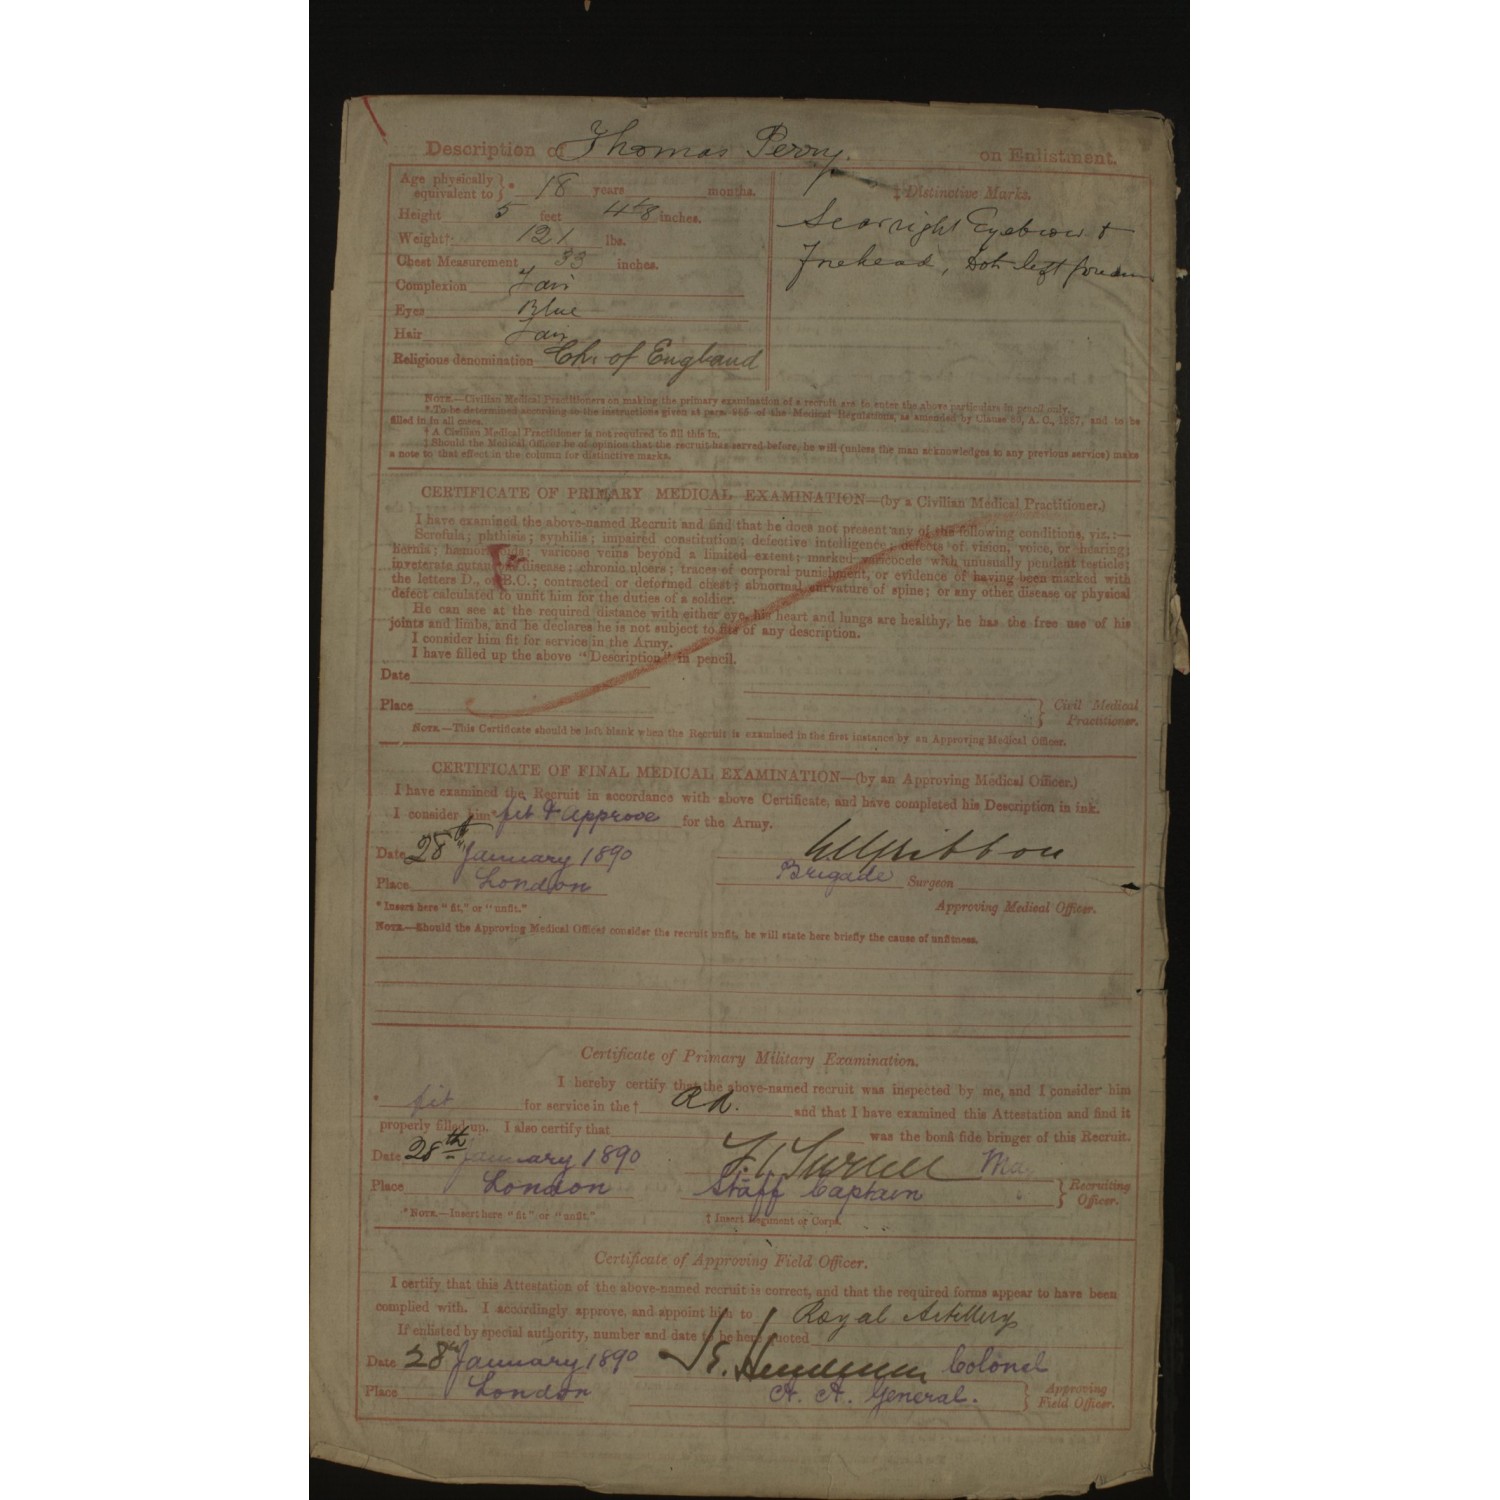 Description of Thomas Perry. on Enlistment.
Age physically equivalent to }* 18 years months.
Height 5 feet 4 inches.
Weight† 121 lbs.
Chest Measurement 33 inches.
Complexion Fair
Eyes Blue
Hair Fair
Religious denomination Ch. of England
‡ Distinctive Marks.
Scar right Eyebrow &
Forehead, Dots left forearm
NOTE.—Civilian Medical Practitioners on making the primary examination of a recruit are to enter the above particulars in pencil only.
* To be determined according to the instructions given at para. of the Medical Regulations, as amended by Clause A. C., 1887, and to be
filled in in all cases.
† A Civilian Medical Practitioner is not required to fill this in.
‡ Should the Medical Officer be of opinion that the recruit has served before, he will (unless the man acknowledges to any previous service) make
a note to that effect in the column for distinctive marks.
CERTIFICATE OF PRIMARY MEDICAL EXAMINATION—(by a Civilian Medical Practitioner.)
I have examined the above-named Recruit and find that he does not present any of the following conditions, viz.:—
Scrofula; phthisis; syphilis; impaired constitution; defective intelligence; defects of vision, voice, or hearing;
hernia; hæmorrhoids; varicose veins beyond a limited extent; marked varicocele with unusually pendent testicle;
inveterate cutaneous disease; chronic ulcers; traces of corporal punishment, or evidence of having been marked with
the letters D., or B.C.; contracted or deformed chest; abnormal curvature of spine; or any other disease or physical
defect calculated to unfit him for the duties of a soldier.
He can see at the required distance with either eye, his heart and lungs are healthy, he has the free use of his
joints and limbs, and he declares he is not subject to fits of any description.
I consider him fit for service in the Army.
I have filled up the above "Description" in pencil.
Date
Place } Civil Medical Practitioner.
NOTE.—This Certificate should be left blank when the Recruit is examined in the first instance by an Approving Medical Officer.
CERTIFICATE OF FINAL MEDICAL EXAMINATION—(by an Approving Medical Officer.)
I have examined the Recruit in accordance with above Certificate, and have completed his Description in ink.
I consider him* fit & approve for the Army.
Date 28th January 1890 Gribbon
Place London Brigade Surgeon
* Insert here "fit," or "unfit." Approving Medical Officer.
NOTE.—Should the Approving Medical Officer consider the recruit unfit, he will state here briefly the cause of unfitness.
Certificate of Primary Military Examination.
I hereby certify that the above-named recruit was inspected by me, and I consider him
* fit for service in the † RA. and that I have examined this Attestation and find it
properly filled up. I also certify that was the bonâ fide bringer of this Recruit.
Date 28th January 1890
Place London Staff Captain } Recruiting Officer.
*NOTE.—Insert here "fit" or "unfit." † Insert Regiment or Corps.
Certificate of Approving Field Officer.
I certify that this Attestation of the above-named recruit is correct, and that the required forms appear to have been
complied with. I accordingly approve, and appoint him to Royal Artillery
If enlisted by special authority, number and date to be here quoted
Date 28th January 1890 Henderson Colonel
Place London A. A. General. } Approving Field Officer.